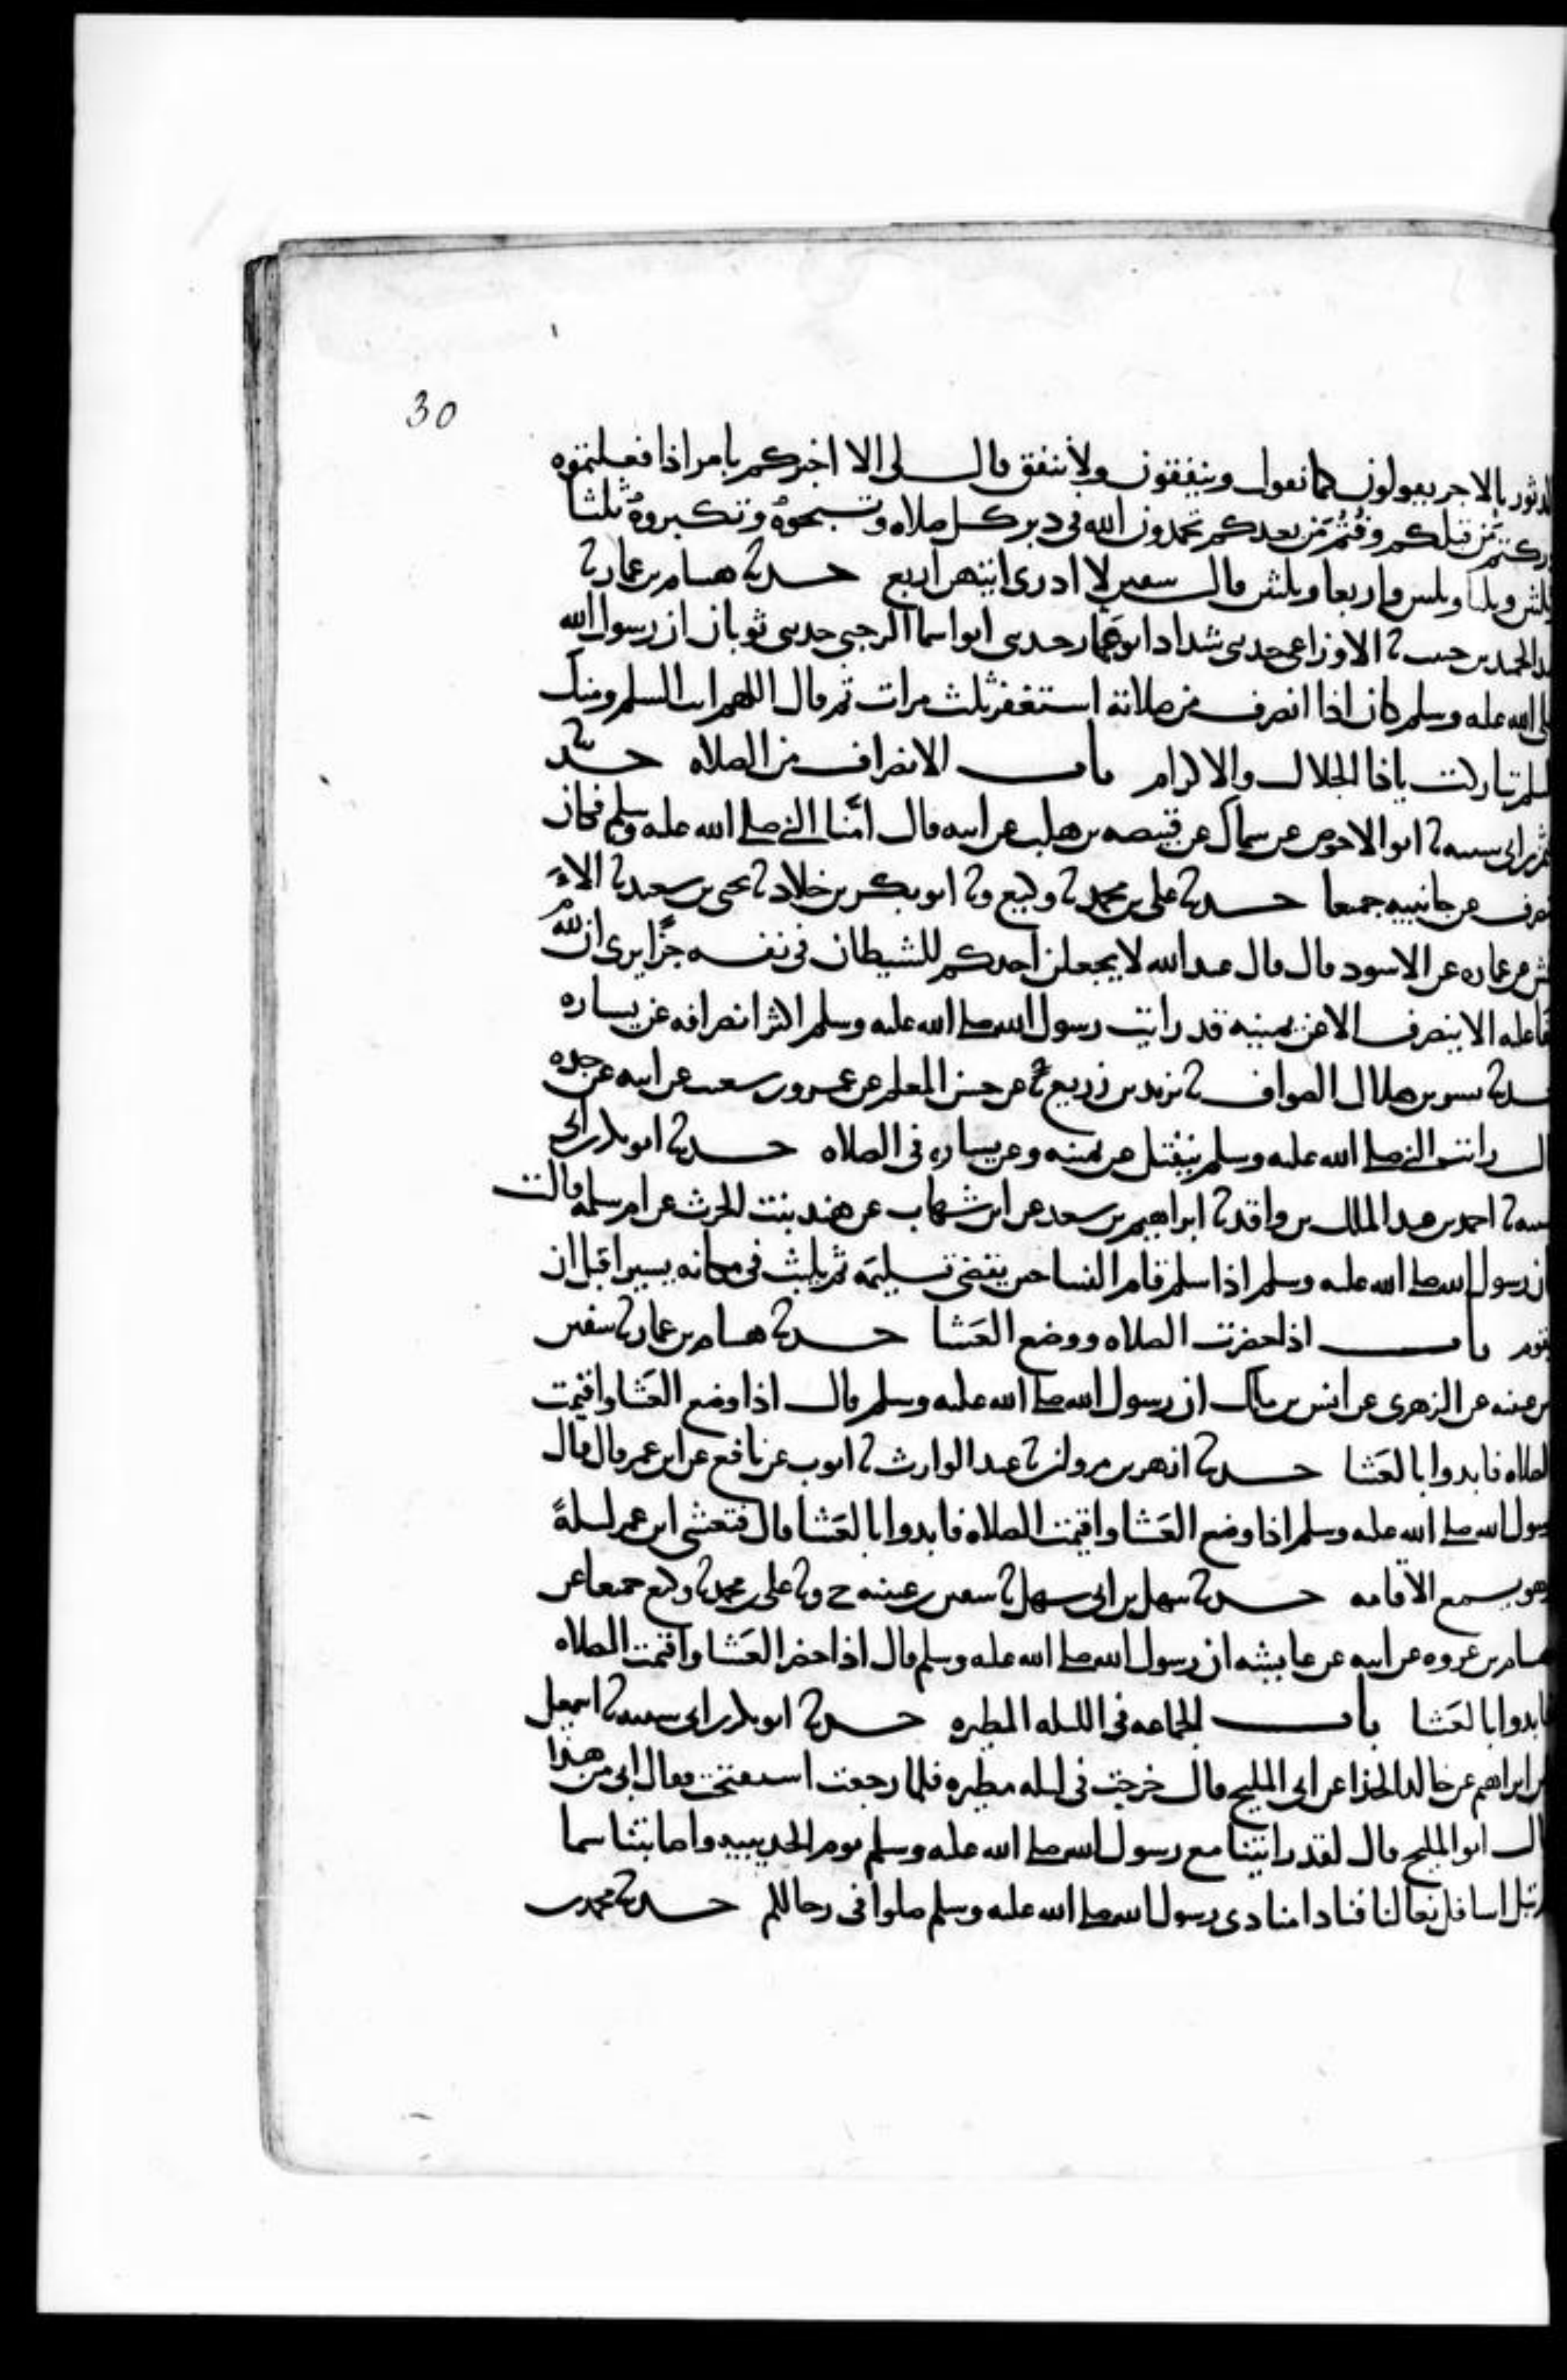 30
الدثور بالاجر يقولون كما نقول وينفقون ولا ننفق قال لي الا اخبركم بامر اذا فعلتموه
ادركتم من قبلكم وفتم من بعدكم تحمدون الله في دبر كل صلاه وتسبحوه وتكبروه ثلثا
وثلثين وثلثا وثلثين واربعا وثلثين قال سفين لا ادرى ايتهن اربع حدثنا هشام بن عمار ثنا
عبد الحميد بن حبيب ثنا الاوزاعي حدثني شداد ابو عمار حدثني ابو اسما الرحبي حدثني ثوبان ان رسول الله
صلى الله عليه وسلم كان اذا انصرف من صلاته استغفر ثلث مرات ثم قال اللهم انت السلم ومنك
السلم تباركت ياذا الجلال والاكرام باب الانصراف من الصلاه حدثنا
عثمن بن ابي شيبه ثنا ابو الاحوص عن سماك عن قبيصه بن هلب عن ابيه قال امنا النبي صلى الله عليه وسلم فكان
ينصرف عن جانبيه جميعا حدثنا علي بن محمد ثنا وكيع وثنا ابو بكر بن خلاد ثنا يحيى بن سعيد ثنا الا
عمش عن عماره عن الاسود قال قال عبد الله لا يجعلن احدكم للشيطان في نفسه جزا يرى ان لله
حقا عليه الا ينصرف الا عن يمينه قد رايت رسول الله صلى الله عليه وسلم اكثر انصرافه عن يساره
حدثنا بشر بن هلال الصواف ثنا يزيد بن زريع عن حسين المعلم عن عمرو بن شعيب عن ابيه عن جده
قال رايت النبي صلى الله عليه وسلم ينفتل عن يمينه وعن يساره في الصلاه حدثنا ابو بكر بن ابي
شيبه ثنا احمد بن عبد الملك بن واقد ثنا ابراهيم بن سعد عن ابن شهاب عن هند بنت الحرث عن ام سلمه قالت
كان رسول الله صلى الله عليه وسلم اذا سلم قام النسا حين يقضي تسليمه ثم يلبث في مكانه يسيرا قبل ان
يقوم باب اذا حضرت الصلاه ووضع العشا حدثنا هشام بن عمار ثنا سفين
بن عيينه عن الزهري عن انس بن مالك ان رسول الله صلى الله عليه وسلم قال اذا وضع العشا واقيمت
الصلاه فابدوا بالعشا حدثنا ازهر بن مروان ثنا عبد الوارث ثنا ايوب عن نافع عن ابن عمر قال قال
رسول الله صلى الله عليه وسلم اذا وضع العشا واقيمت الصلاه فابدوا بالعشا قال فتعشى ابن عمر ليلة
وهو يسمع الاقامه حدثنا سهل بن ابي سهل ثنا سفين بن عيينه ح وثنا علي بن محمد ثنا وكيع جميعا عن
هشام بن عروه عن ابيه عن عايشه ان رسول الله صلى الله عليه وسلم قال اذا حضر العشا واقيمت الصلاه
فابدوا بالعشا باب الجماعه في الليله المطيره حدثنا ابو بكر بن ابي شيبه ثنا اسمعيل
بن ابراهيم عن خالد الحذا عن ابي المليح قال خرجت في ليله مطيره فلما رجعت استفتحت فقال ابي من هذا
قال ابو المليح قال لقد رايتنا مع رسول الله صلى الله عليه وسلم يوم الحديبيه واصابتنا سما
لم تبل اسافل نعالنا فنادا منادى رسول الله صلى الله عليه وسلم صلوا في رحالكم حدثنا محمد بن